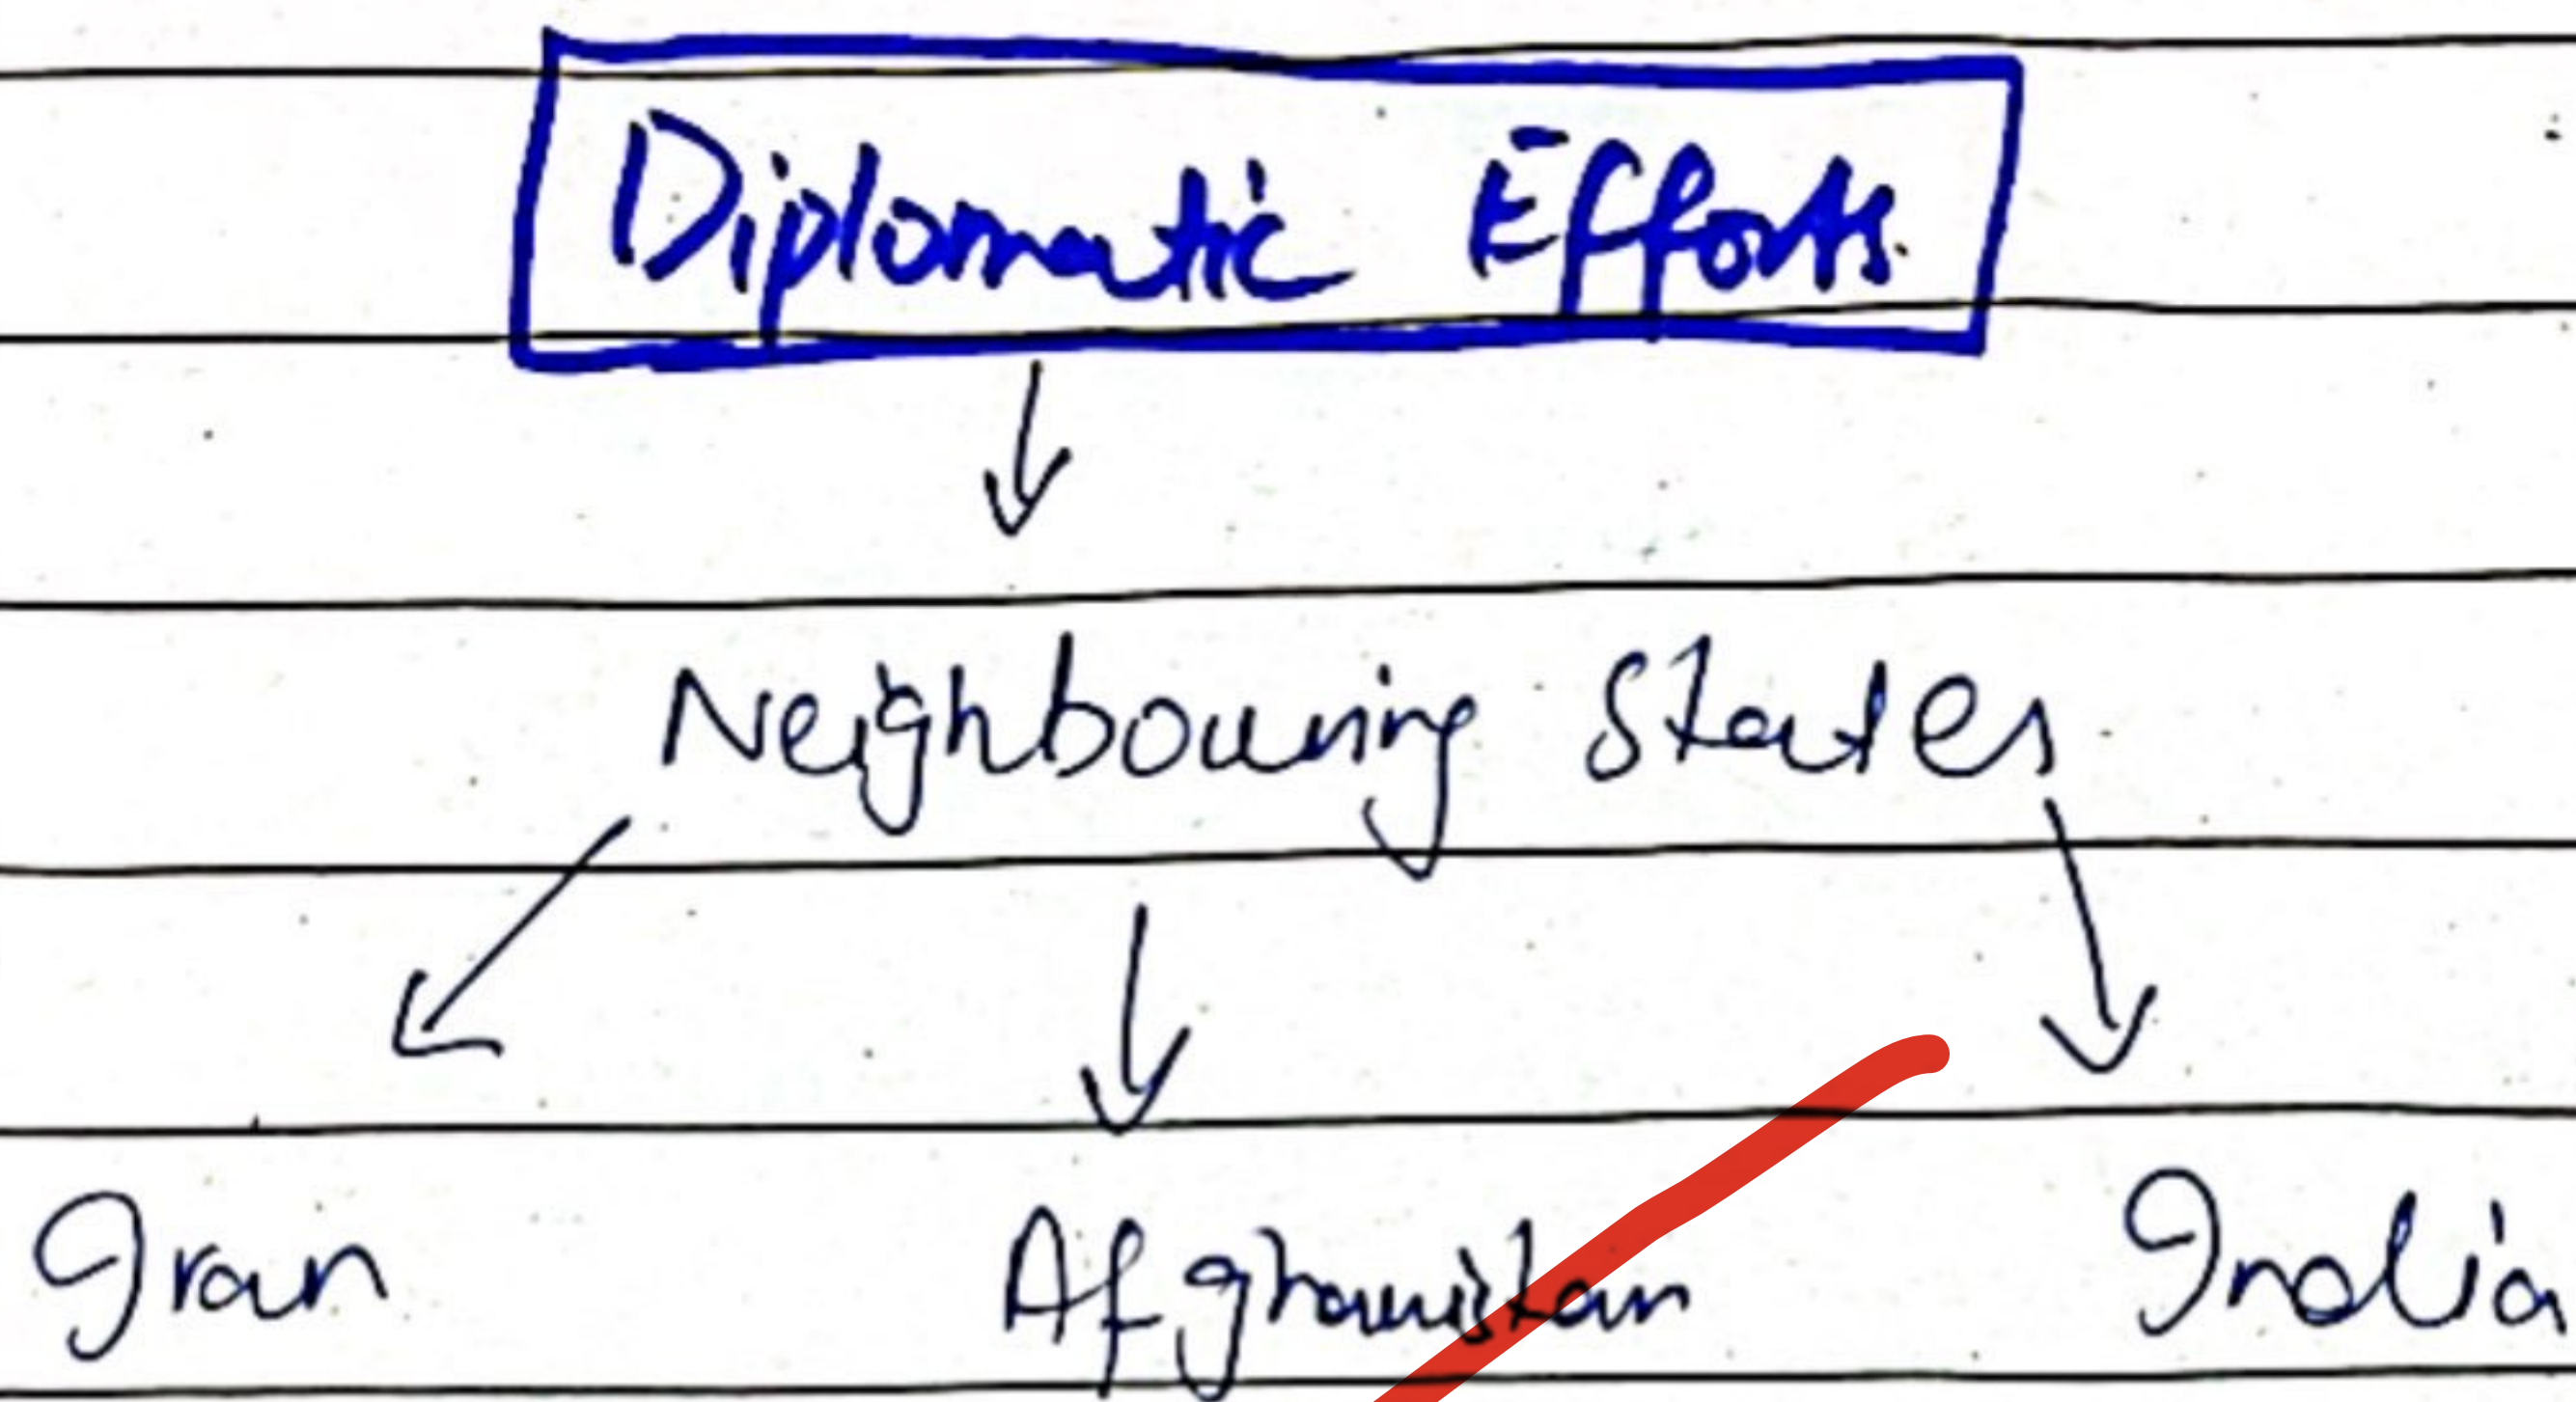 Diplomatic Efforts
Neighbouring States
Iran Afghanistan India